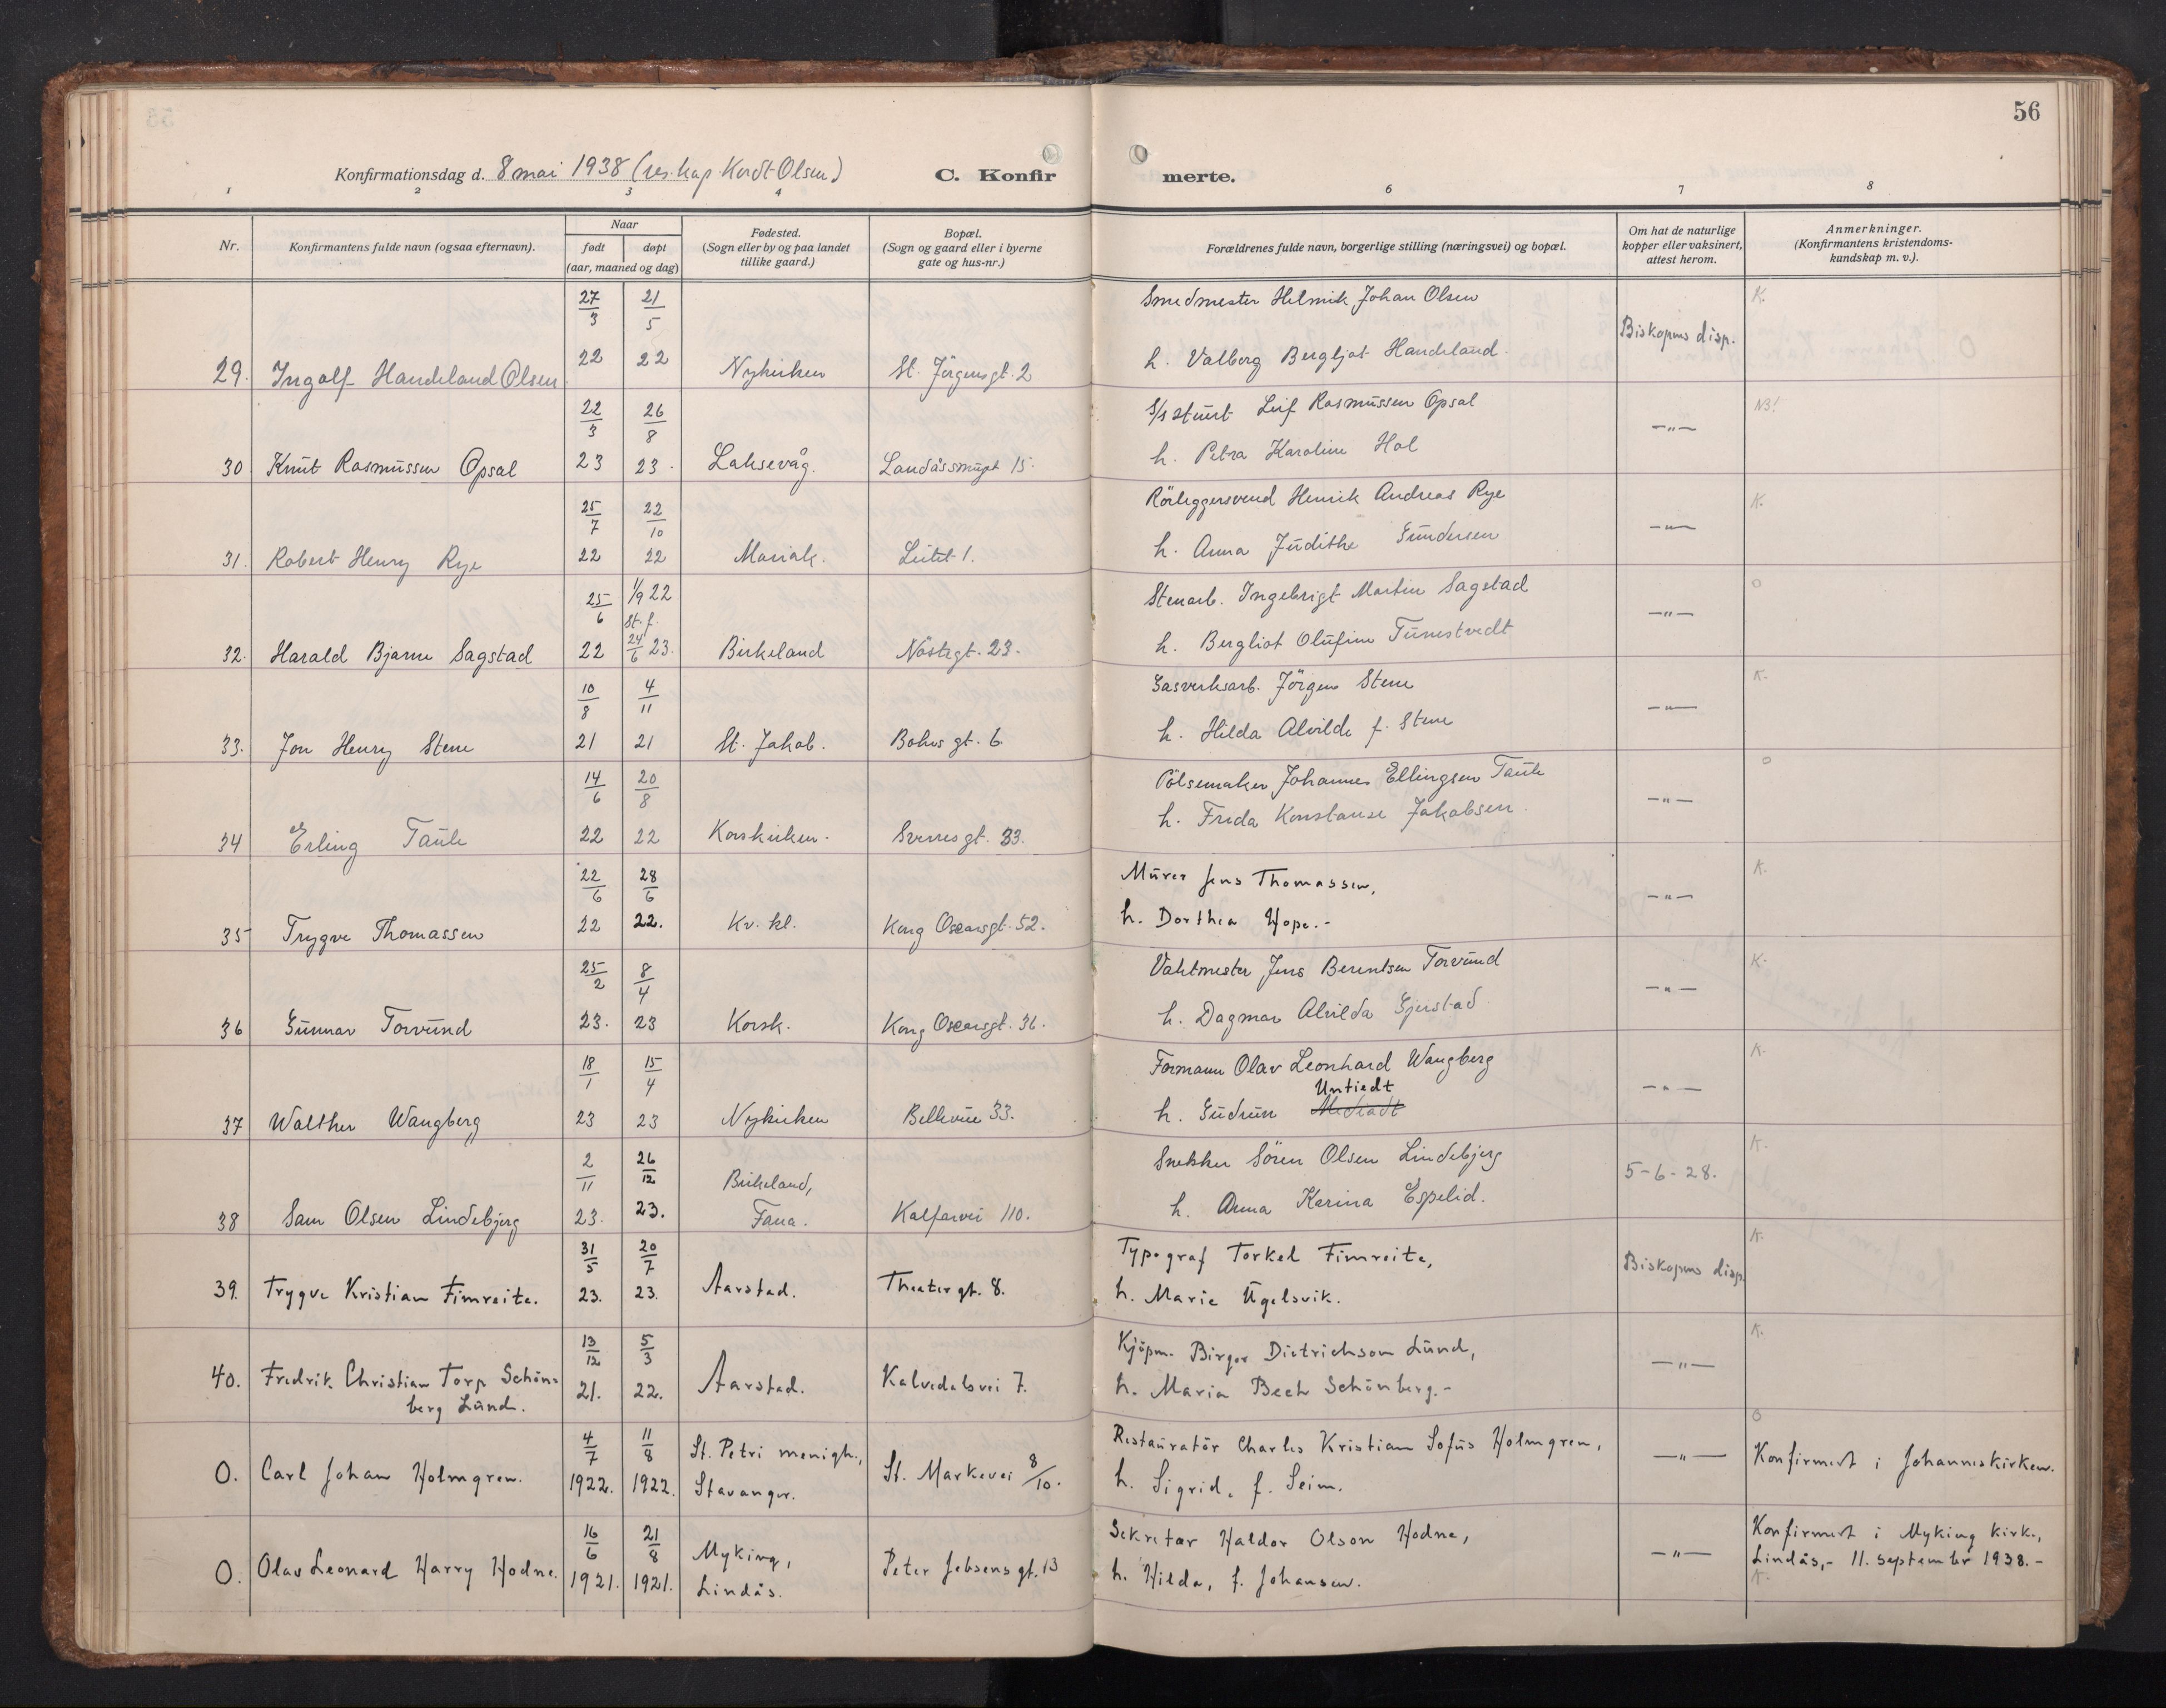 56
Konfirmationsdag d. 8 mai 1938 (res. kap. Kordt Olsen)
C. Konfir
merte.
1 2 3 4 6 7 8
Nr.
Konfirmantens fulde navn (ogsaa efternavn).
Naar
født
døpt
(aar, maaned og dag)
Fødested.
(Sogn eller by og paa landet
tillike gaard.)
Bopæl.
(Sogn og gaard eller i byerne
gate og hus-nr.)
Forældrenes fulde navn, borgerlige stilling (næringsvei) og bopæl.
Om hat de naturlige
kopper eller vaksinert,
attest herom.
Anmerkninger.
(Konfirmantens kristendoms-
kundskap m. v.).
27/3 21/5 Smedmester Helmik Johan Olsen Biskopens disp. K.
29. Ingolf Handeland Olsen 22 22 Nykirken St. Jörgensgt. 2 h. Valborg Bergljot Handeland
22/3 26/8 S/s stuert Leif Rasmüssen Opsal —"— NB!
30. Knüt Rasmüssen Opsal 23 23. Laksevåg. Landåssmugt 15. h. Petra Karoline Hol
25/7 22/10 Rörleggersvend Henrik Andreas Rye —"— K.
31. Robert Henry Rye 22 22 Mariak. Leitet 1. h. Anna Jüdithe Gündersen
25/6 1/9 22 St. f. Stenarb. Ingebrigt Martin Sagstad —"— O
32. Harald Bjarne Sagstad 22 24/6 23. Birkeland Nöstegt. 23. h. Bergliot Olüfine Tünestvedt
10/8 4/11 Gasverksarb. Jörgen Stene —"— K.
33. Jon Henry Stene 21 21 St. Jakob. Bohrs gt. 6. h. Hilda Alvilde f. Stene
14/6 20/8 Pölsemaker Johannes Ellingsen Taüle —"— O
34 Erling Taüle 22 22 Korskirken. Sverresgt. 33. h. Frida Konstanse Jakobsen.
22/6 28/6 Mürer Jens Thomassen, —"— K.
35 Trygve Thomassen 22 22. Kv. kl. Kong Oscarsgt. 52. h. Dorthea Hope.-
25/2 8/4 Vaktmester Jens Berentsen Torvünd —"— K.
36 Günnar Torvünd 23. 23 Korsk. Kong Oscarsgt. 36. h. Dagmar Alvilda Gjerstad
18/1 15/4 Formann Olav Leonhard Wangberg —"— K.
Untiedt
37 Walther Wangberg 23 23 Nykirken Bellevüe 33. h. Güdrün
2/11 26/12 Birkeland, Snekker Sören Olsen Lindebjerg 5-6-28. K.
38 Sam Olsen Lindebjerg 23. 23. Fana. Kalfarvei 110. h. Anna Karina Espelid.
31/5 20/7 Typograf Torkel Fimreite, Biskopens disp. K.
39. Trygve Kristian Fimreite. 23. 23. Aarstad. Theatergt. 8. h. Marie Ügelsvik.
13/12 5/3 Kjöpm. Birger Dietrichson Lünd, —"— K.
40. Fredrik Christian Torp Schön= 21. 22. Aarstad. Kalvedalsvei 7. h. Maria Bech Schönberg.-
berg Lünd.
4/7 11/8 St. Petri menigh., Restauratör Charles Kristian Sofüs Holmgren, O
O. Carl Johan Holmgren. 1922. 1922. Stavanger. St. Markevei 8/10. h. Sigrid, f. Seim. —"— Konfirmert i Johanneskirken.
16/6 21/8 Myking, Sekretær Haldor Olson Hodne, Konfirmert i Myking kirke,
O. Olav Leonard Harry Hodne. 1921. 1921. Lindås. Peter Jebsens gt. 13 h. Hilda, f. Johansen. —"— Lindås,- 11. september 1938.-
K.